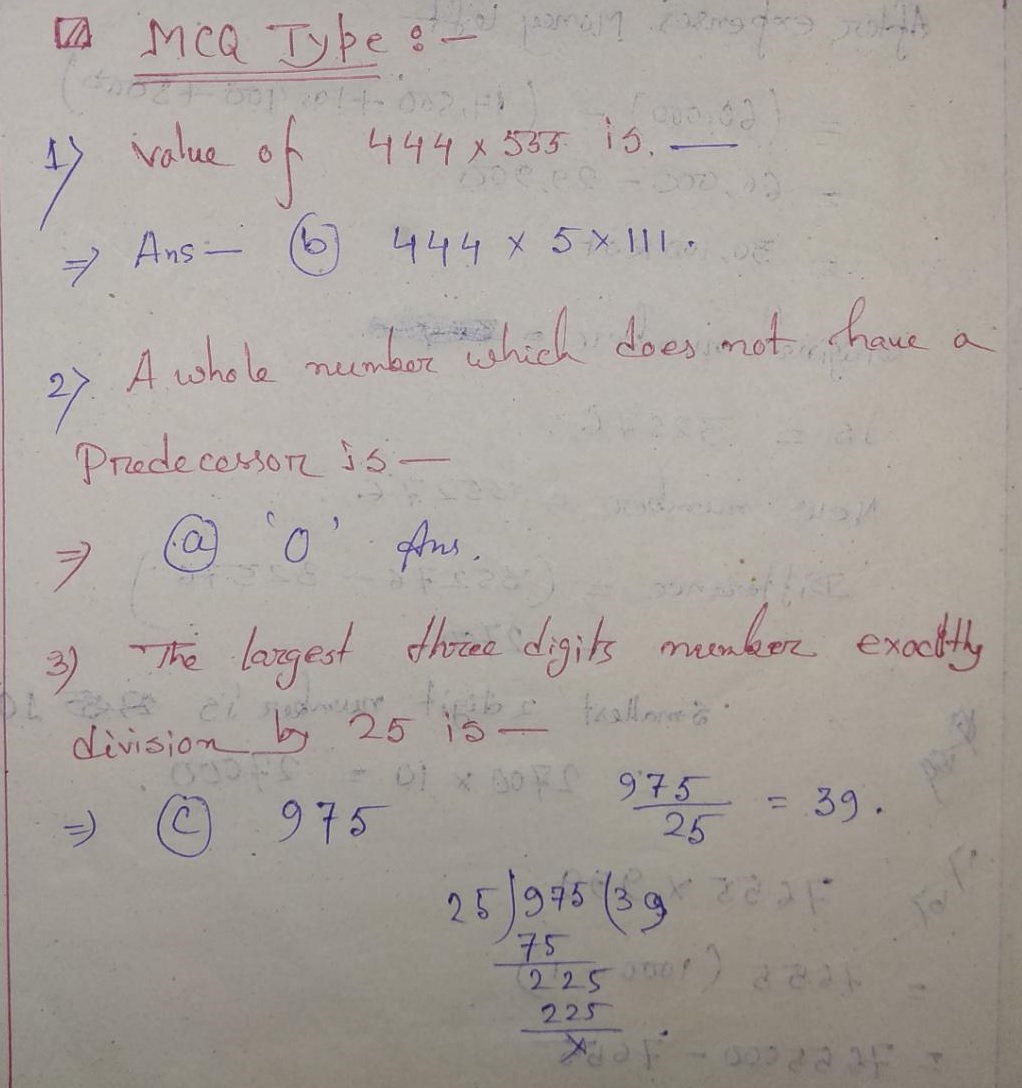 MCQ Type :-
1) value of 444 x 555 is. —
⇒ Ans — (b) 444 x 5 x 111.
2) A whole number which does not have a
Predecessor is —
⇒ (a) '0' Ans.
3) The largest three digits number exactly
division by 25 is —
⇒ (c) 975 975/25 = 39.
25)975(39
75
225
225
x